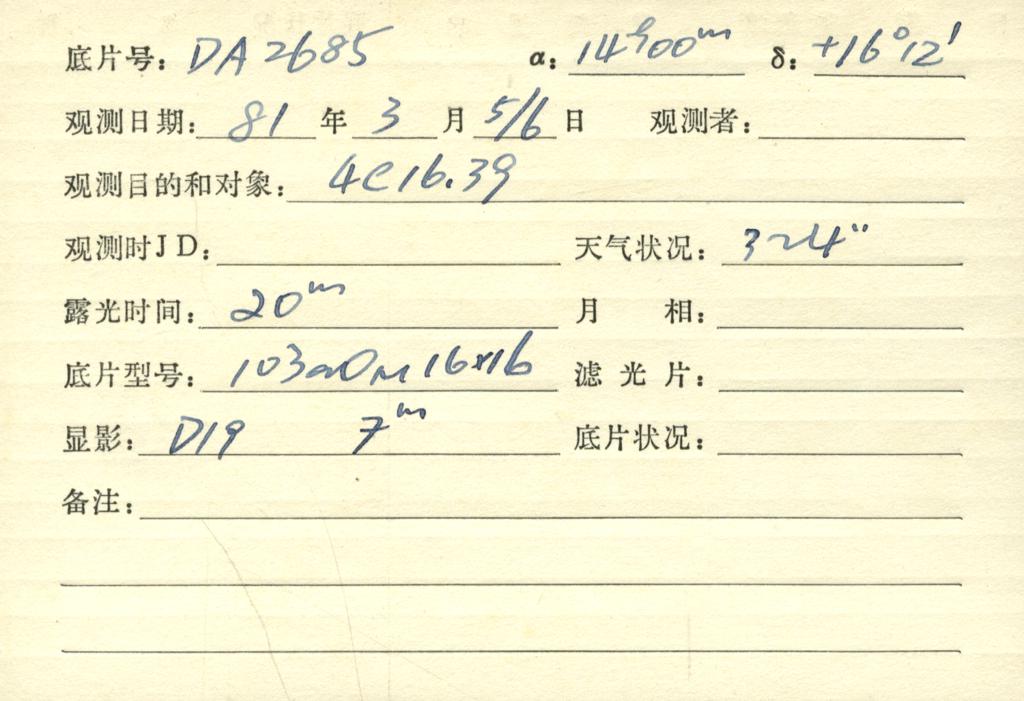 底片号: DA2685 α: 14ʰ00ᵐ δ: +16°12′
观测日期: 81 年 3 月 5/6 日 观测者:
观测目的和对象: 4C16.39
观测时JD: 天气状况: 3~4″
露光时间: 20ᵐ 月 相:
底片型号: 103aO 16×16 滤光片:
显影: D19 7ᵐ 底片状况:
备注: